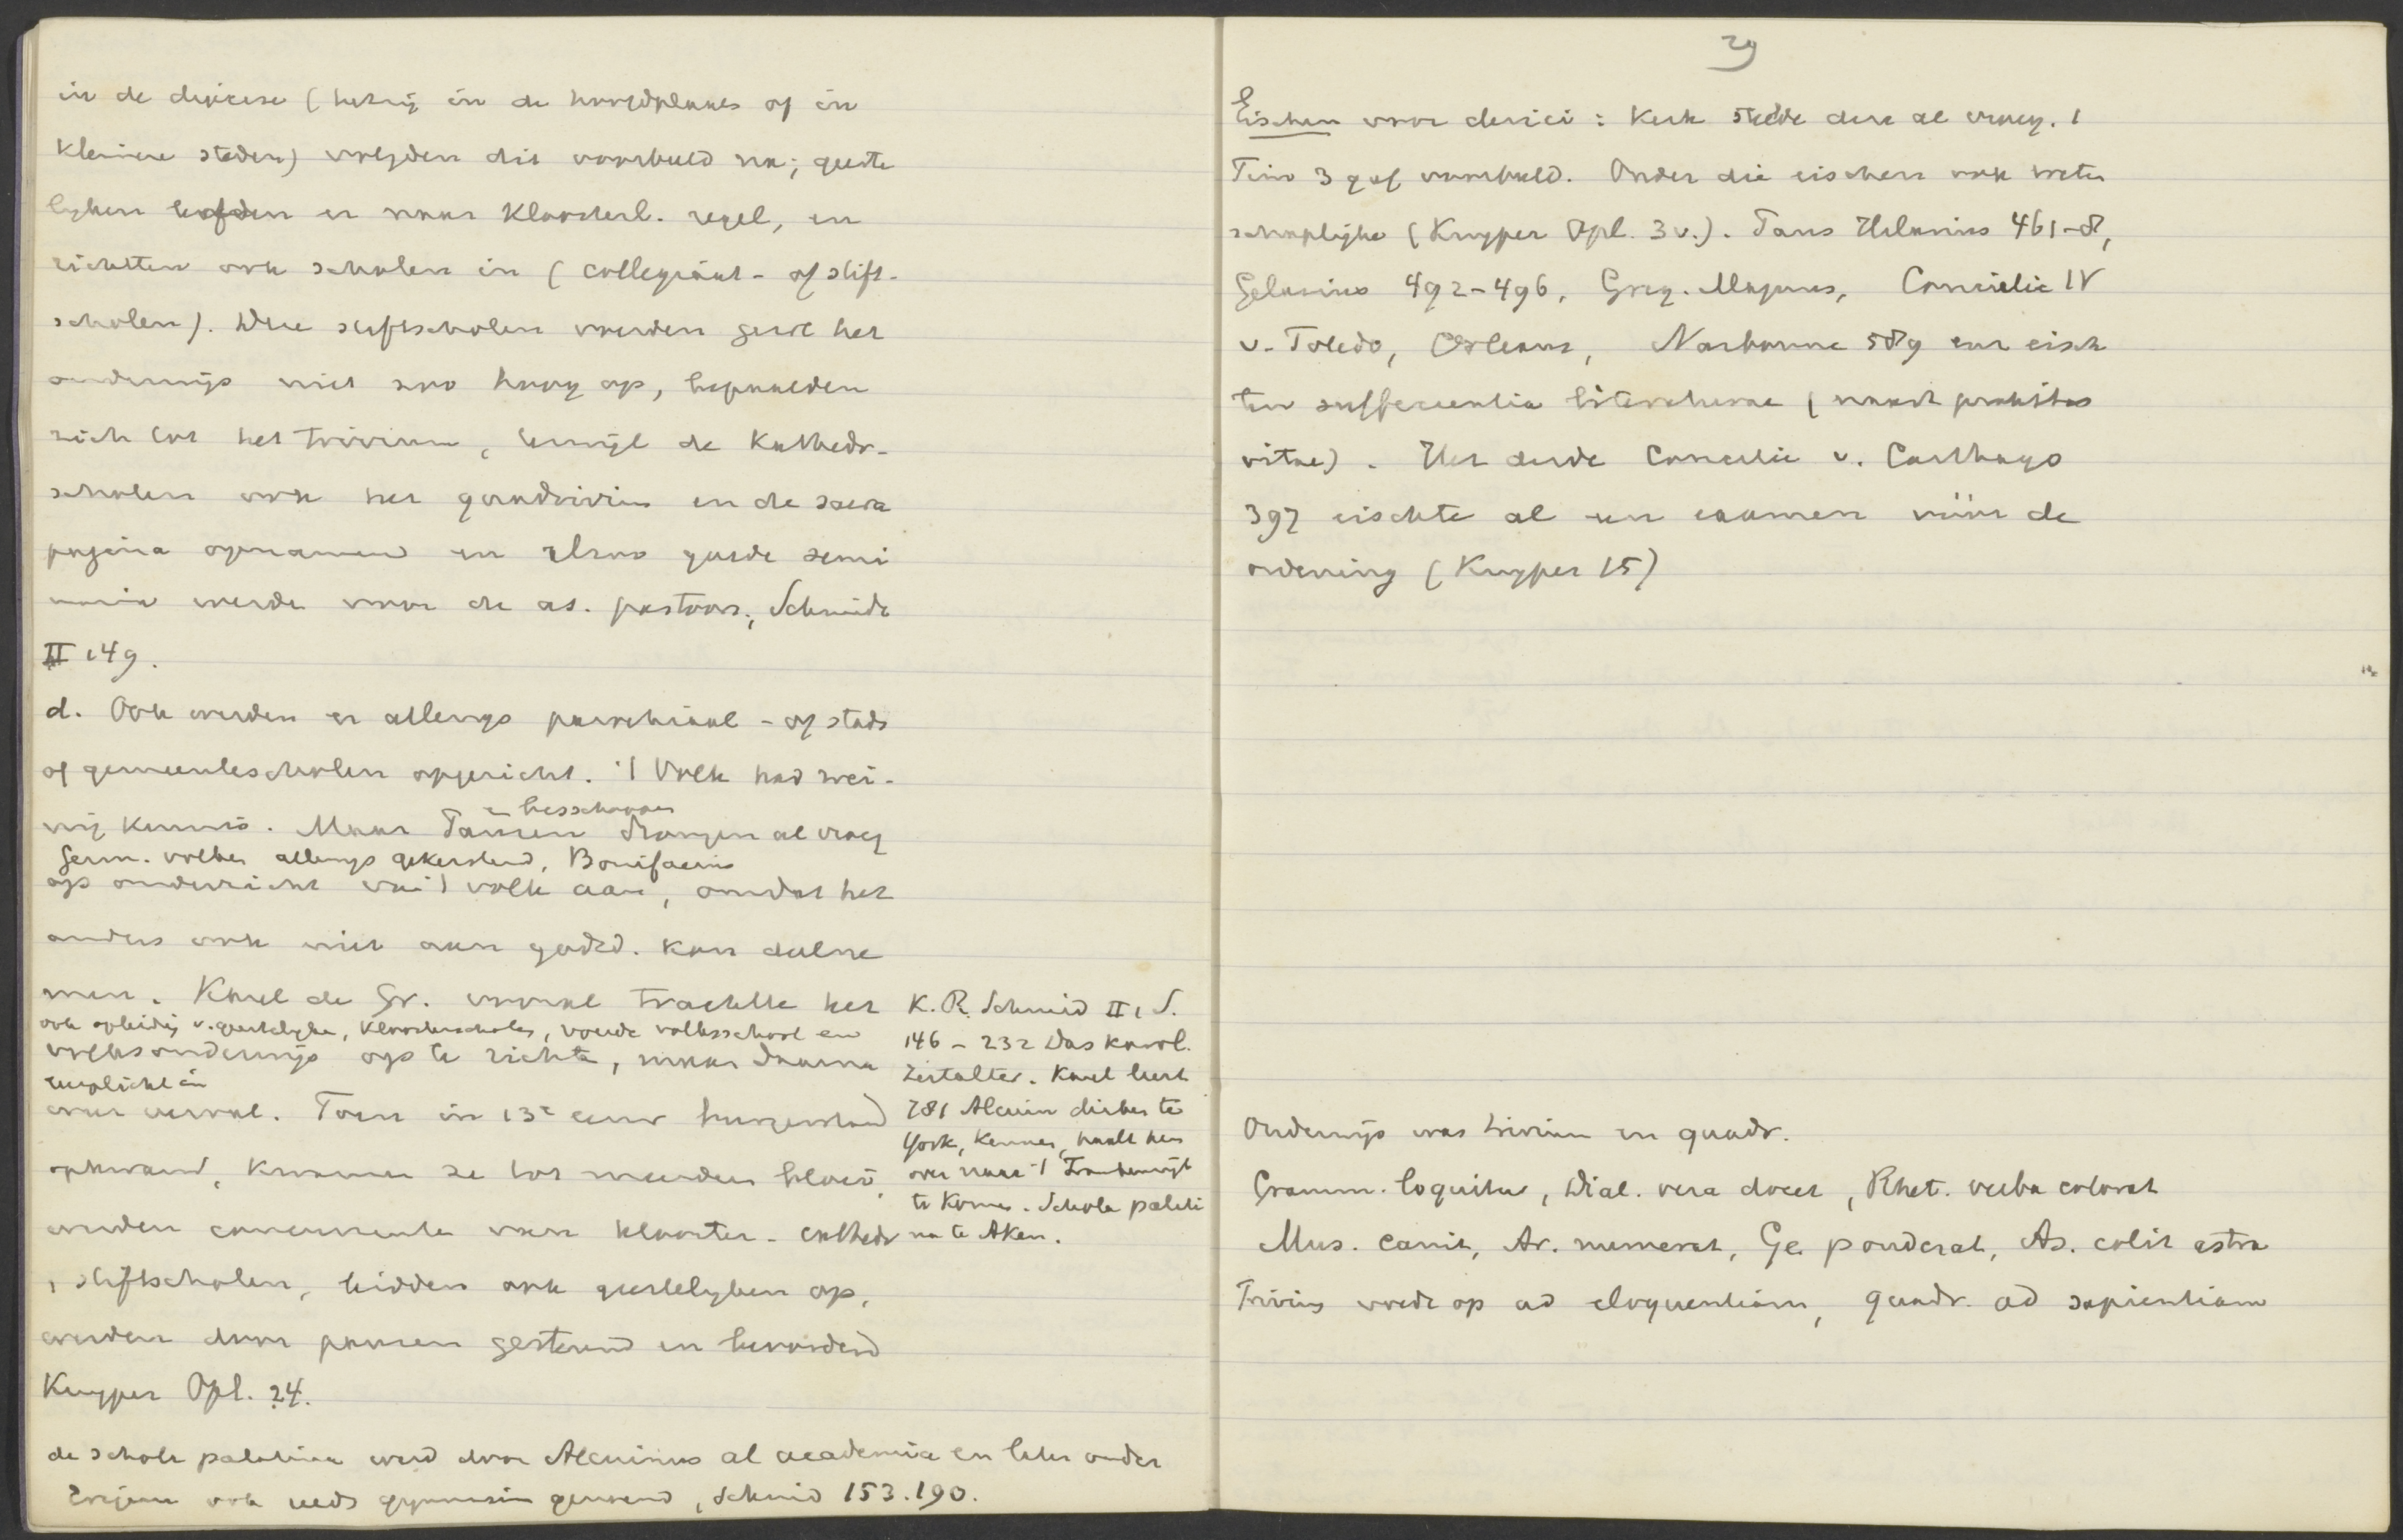 in de diocese (hetzij in de hoofdplaats of in
kleinere steden) volgden dit voorbeeld na; geeste
lyken leefden er naar kloosterl. regel, en
richtten ook scholen in (collegiaat- of stift-
scholen). Deze stiftscholen vatten het
onderwijs niet zoo hoog op, bepaalden
zich tot het trivium, terwijl de Kathedr-
scholen ook het quadrivium en de sacra
pagina opnamen en alzoo goede semi
naria werden voor de as. pastoors, Schmidt
II 149.
d. Ook werden er allengs parochiaal- of stads
of gemeentescholen opgericht. 't Volk had wei-
nig kennis. Maar Pausen en bisschoppen drongen al vroeg
Germ. volken allengs gekerstend, Bonifacius
op onderricht van 't volk aan, omdat het
anders ook niet aan godsd. kon deelne
men. Karel de Gr. vooral trachtte het
ook opleiding v. geestelyken, kloosterscholen, voerde volksschool en
volksonderwijs op te richten, maar daarna
leerplicht in
weer verval. Toen in 13e eeuw burgerstand
opkwam, kwamen ze tot meerder bloei,
werden concurrenten van klooster- cathedr
, stiftscholen, leidden ook geestelyken op,
werden door pausen gesteund en bevorderd
Kuyper Opl. 24.
de schola palatina werd door Alcuinus al academia en later onder
ook reeds gymnasium genoemd, Schmid 153.190.
K. A. Schmid II, 1 S.
146 - 232 Das karol.
Zeitalter. Karel leert
781 Alcuin
York, kennen, haalt hem
over naar 't Frankenrijk
te komen. Schola palati
na te Aken.
29
Eischen voor clerici: Kerk stelde deze al vroeg. 1
Tim 3 gaf voorbeeld. Onder die eischen ook weten
schaplijke (Kuyper Opl. 3 v.). Paus Hilarius 461-8,
Gelasius 492-496, Greg. Magnus, Concilie IV
v. Toledo, Orleans, Narbonne 589 enz eisch
ten sufficientia literaturae (naast probitas
vitae). Het derde Concilie v. Carthago
397 eischte al een examen vóór de
ordening (Kuyper 15)
Onderwijs was trivium en quadr.
Gramm. loquitur, Dial. vera docet, Rhet. verba colorat
Mus. canit, Ar. numerat, Ge ponderat, As. colit astra
Trivium voedt op ad eloquentiam, quadr. ad sapientiam